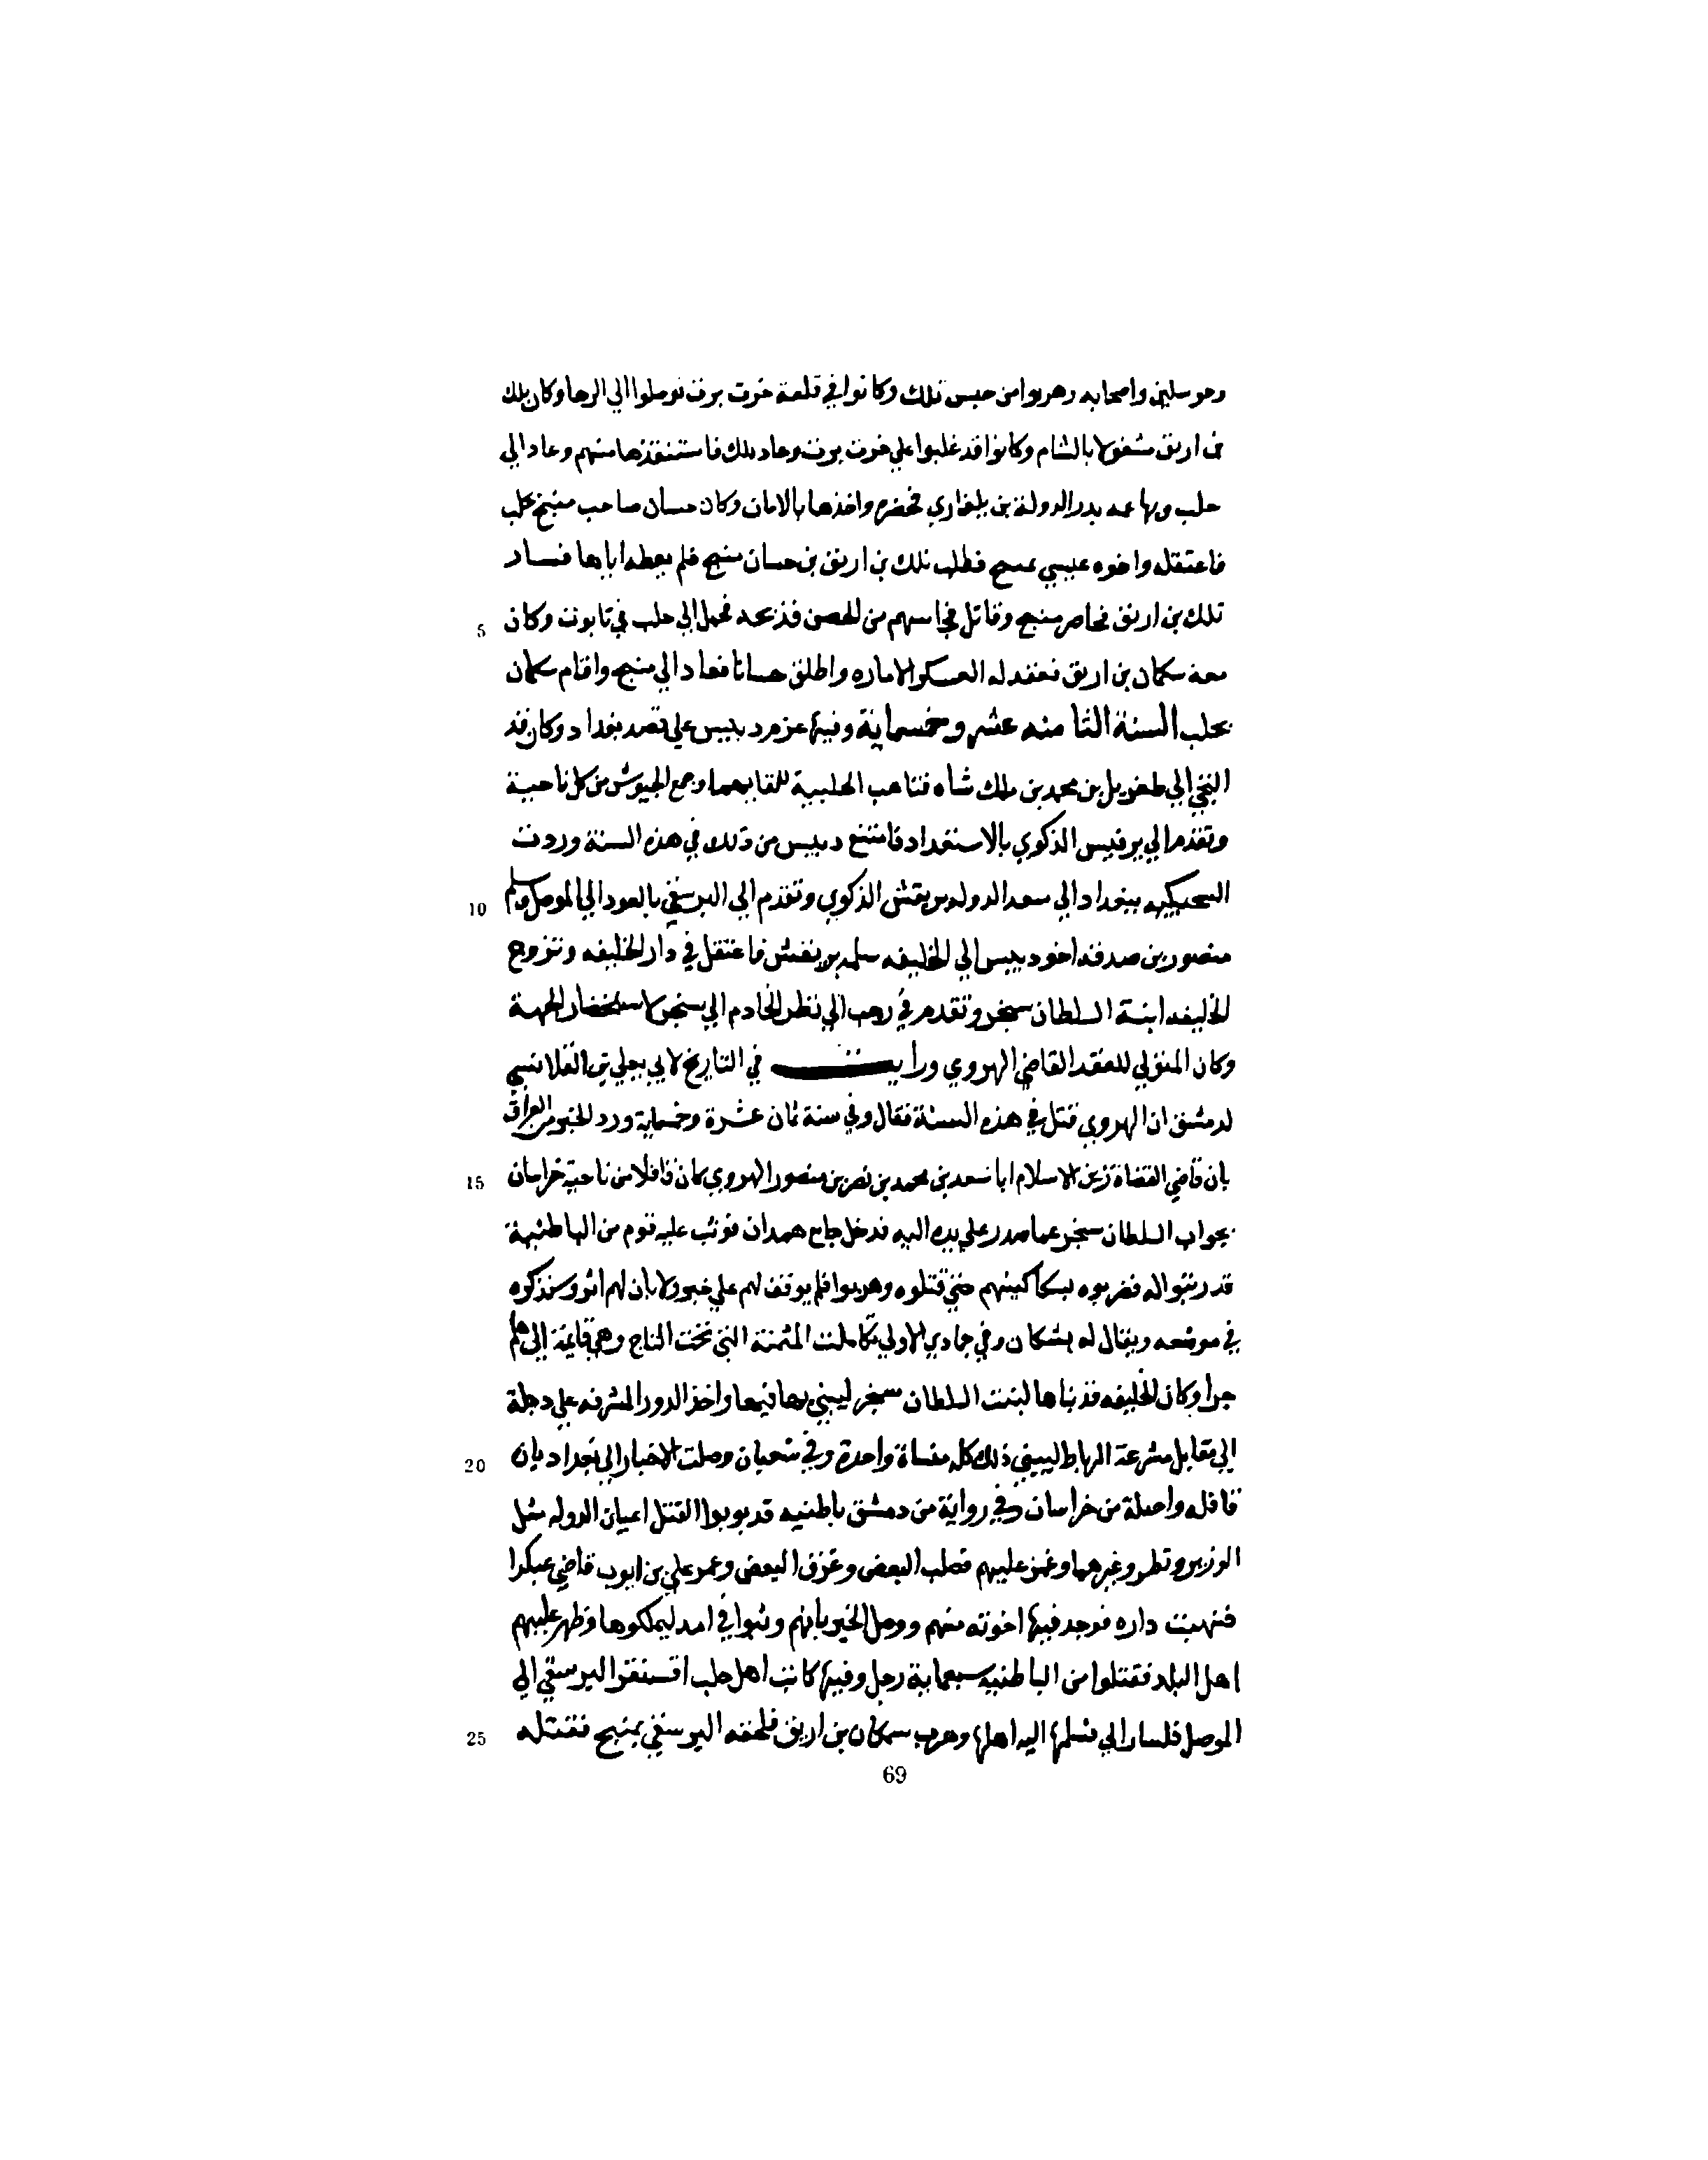 وجوسلين واصحابه وهربوا من حبس تلك وكانوا في قلعة خرت برت توصلوا الي الرها وكان بلك
بن ارتق مشغولا بالشام وكانوا قد غلبوا علي خرت برت وعاد بلك فاستنقذها منهم وعاد الي
حلب وبها عمه بدر الدولة بن بلغازي فحضره واخذها بالامان وكان حسان صاحب منبج بحلب
فاعتقله واخوه عيسي بمنبج فطلب تلك بن ارتق بن حسان منبج فلم يعطه اياها فساد
5 تلك بن ارتق فحاصر منبج وقاتل فجا سهم من الحصن فذبحه فحمل الي حلب في تابوت وكان
معه سكمان بن ارتق فعقد له العسكر الاماره واطلق حسانا فعاد الي منبج واقام سكمان
بحلب السنة الثامنه عشر وخمسماية وفيها عزم دبيس علي قصد بغداد وكان قد
التجي الي طغريل بن محمد بن ملك شاه فتاهب الخليبة للقايهما وجمع الجيوش من كل ناحية
وتقدم الي يرقيس الذكوي بالاستعداد فامتنع دبيس من ذلك في هذه السنة وردت
10 ببغداد الي سعد الدوله يرنقش الذكوي وتقدم الي البرسقي بالعود الي الموصل وسلم
منصور بن صدقه اخو دبيس الي الخليفه سلمه يرنقش فاعتقل في دار الخليفه وتزوج
الخليفه ابنة السلطان سنجر وتقدم في رجب الي نظر الخادم الي سنجر لاستحضار الجهة
وكان المتولي للعقد القاضي الهروي ورايت في التاريخ لابي يعلي بن القلانسي
لدمشق ان الهروي قتل في هذه السنة فقال وفي سنة ثمان عشرة وخمسماية ورد الخبر من العراق
15 بان قاضي القضاة زين الاسلام ابا سعد بن محمد بن نصر بن منصور الهروي كان قافلا من ناحية خراسان
بجواب السلطان سنجر عما صدر علي يده اليه فدخل جامع همدان فوثب عليه قوم من الباطنية
قد رتبوا له فضربوه بسكاكينهم حتي قتلوه وهربوا فلم يوقف لهم علي خبر ولا بان لهم اثر وسنذكره
في موضعه ويقال له بشكان وفي جمادي الاولي تكاملت المثمنة التي تحت التاج وهي قايمة الي هلم
جرا وكان الخليفه قد بناها لبنت السلطان سنجر ليبني بها فيها واخذ الدور المشرفه علي دجلة
20 الي مقابل مشرعة الرباط ليبني ذلك كله مسناة واحدة وفي شعبان وصلت الاخبار الي بغداد بان
قافله واصلة من خراسان وفي رواية من دمشق باطنيه قد بوبوا لقتل اعيان الدوله مثل
الوزير ونظر وغيرهما وغمز عليهم فصلب البعض وغرق البعض وغمز علي بن ايوب قاضي عبكرا
فنهبت داره فوجد فيها اخوته منهم ووصل الخبر بانهم وثبوا في امد ليملكوها فظهر عليهم
اهل البلد فقتلوا من الباطنيه سبعماية رجل وفيها كاتب اهل حلب اقسنقر البرسقي الي
25 الموصل فلسار الي فسلمها اليه اهلها وهرب سمكان بن ارتق فلحقه البرسقي بمنبج فقتله
69